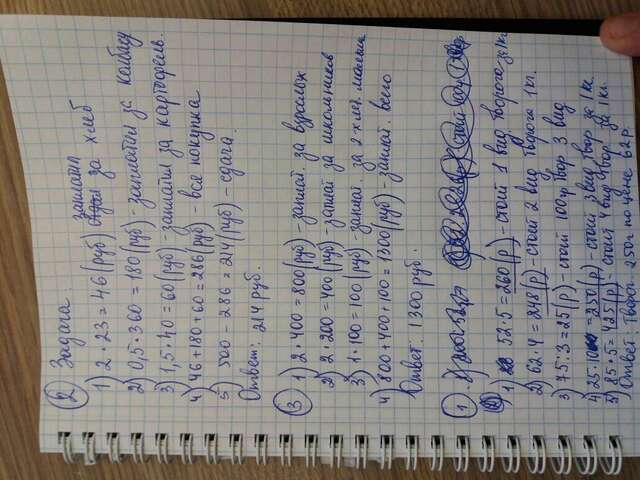 ② Задача.
1) 2 · 23 = 46 (руб) заплатил за хлеб
2) 0,5 · 360 = 180 (руб) - заплатили за колбасу
3) 1,5 · 40 = 60 (руб) - заплатили за картофель.
4) 46 + 180 + 60 = 286 (руб) - вся покупка
5) 500 - 286 = 214 (руб) - сдача.
Ответ: 214 руб.
③ 1) 2 · 400 = 800 (руб) - заплат. за взрослых
2) 2 · 200 = 400 (руб) - заплат за школьников
3) 1 · 100 = 100 (руб) - заплат. за
4) 800 + 400 + 100 = 1300 (руб) - заплат. всего
Ответ: 1300 руб.
①
1) 52 · 5 = 260 (р) - стоит 1 вид творога за 1 кг.
2) 62 · 4 = 248 (р) - стоит 2 вид творога 1 кг.
3) 75 : 3 = 25 (р) - стоит 100 гр твор 3 вид
4) 25 · 10 = 250 (р) - стоит 3 вид твор за 1 кг.
5) 85 · 5 = 425 (р) - стоит 4 вид твор за 1 кг.
Ответ: Творог 250г по цене 62 р.